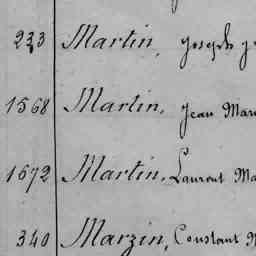 233 Martin, Joseph
1568 Martin, Jean Mar
1672 Martin, Laurent Ma
340 Marzin, Constant M